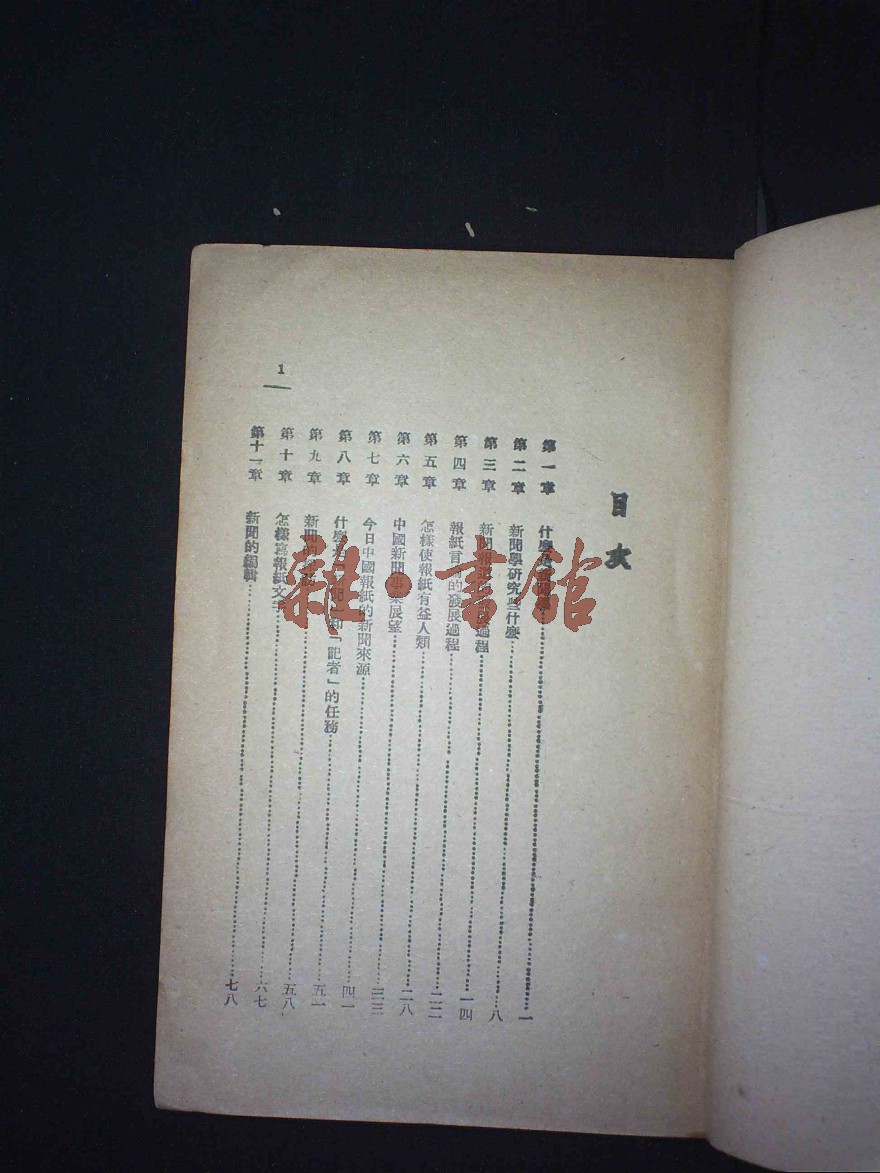 目次
第一章 什麼是新聞學 一
第二章 新聞學研究些什麼 八
第三章 新聞報道 過程 一四
第四章 報紙言論的發展過程 二二
第五章 怎樣使報紙有益人類 二八
第六章 中國新聞事業展望 三三
第七章 今日中國報紙的新聞來源 四一
第八章 什麼是 和「記者」的任務 五一
第九章 新聞的 五八
第十章 怎樣寫報紙文字 六七
第十一章 新聞的編輯 七八
1
雜·書館